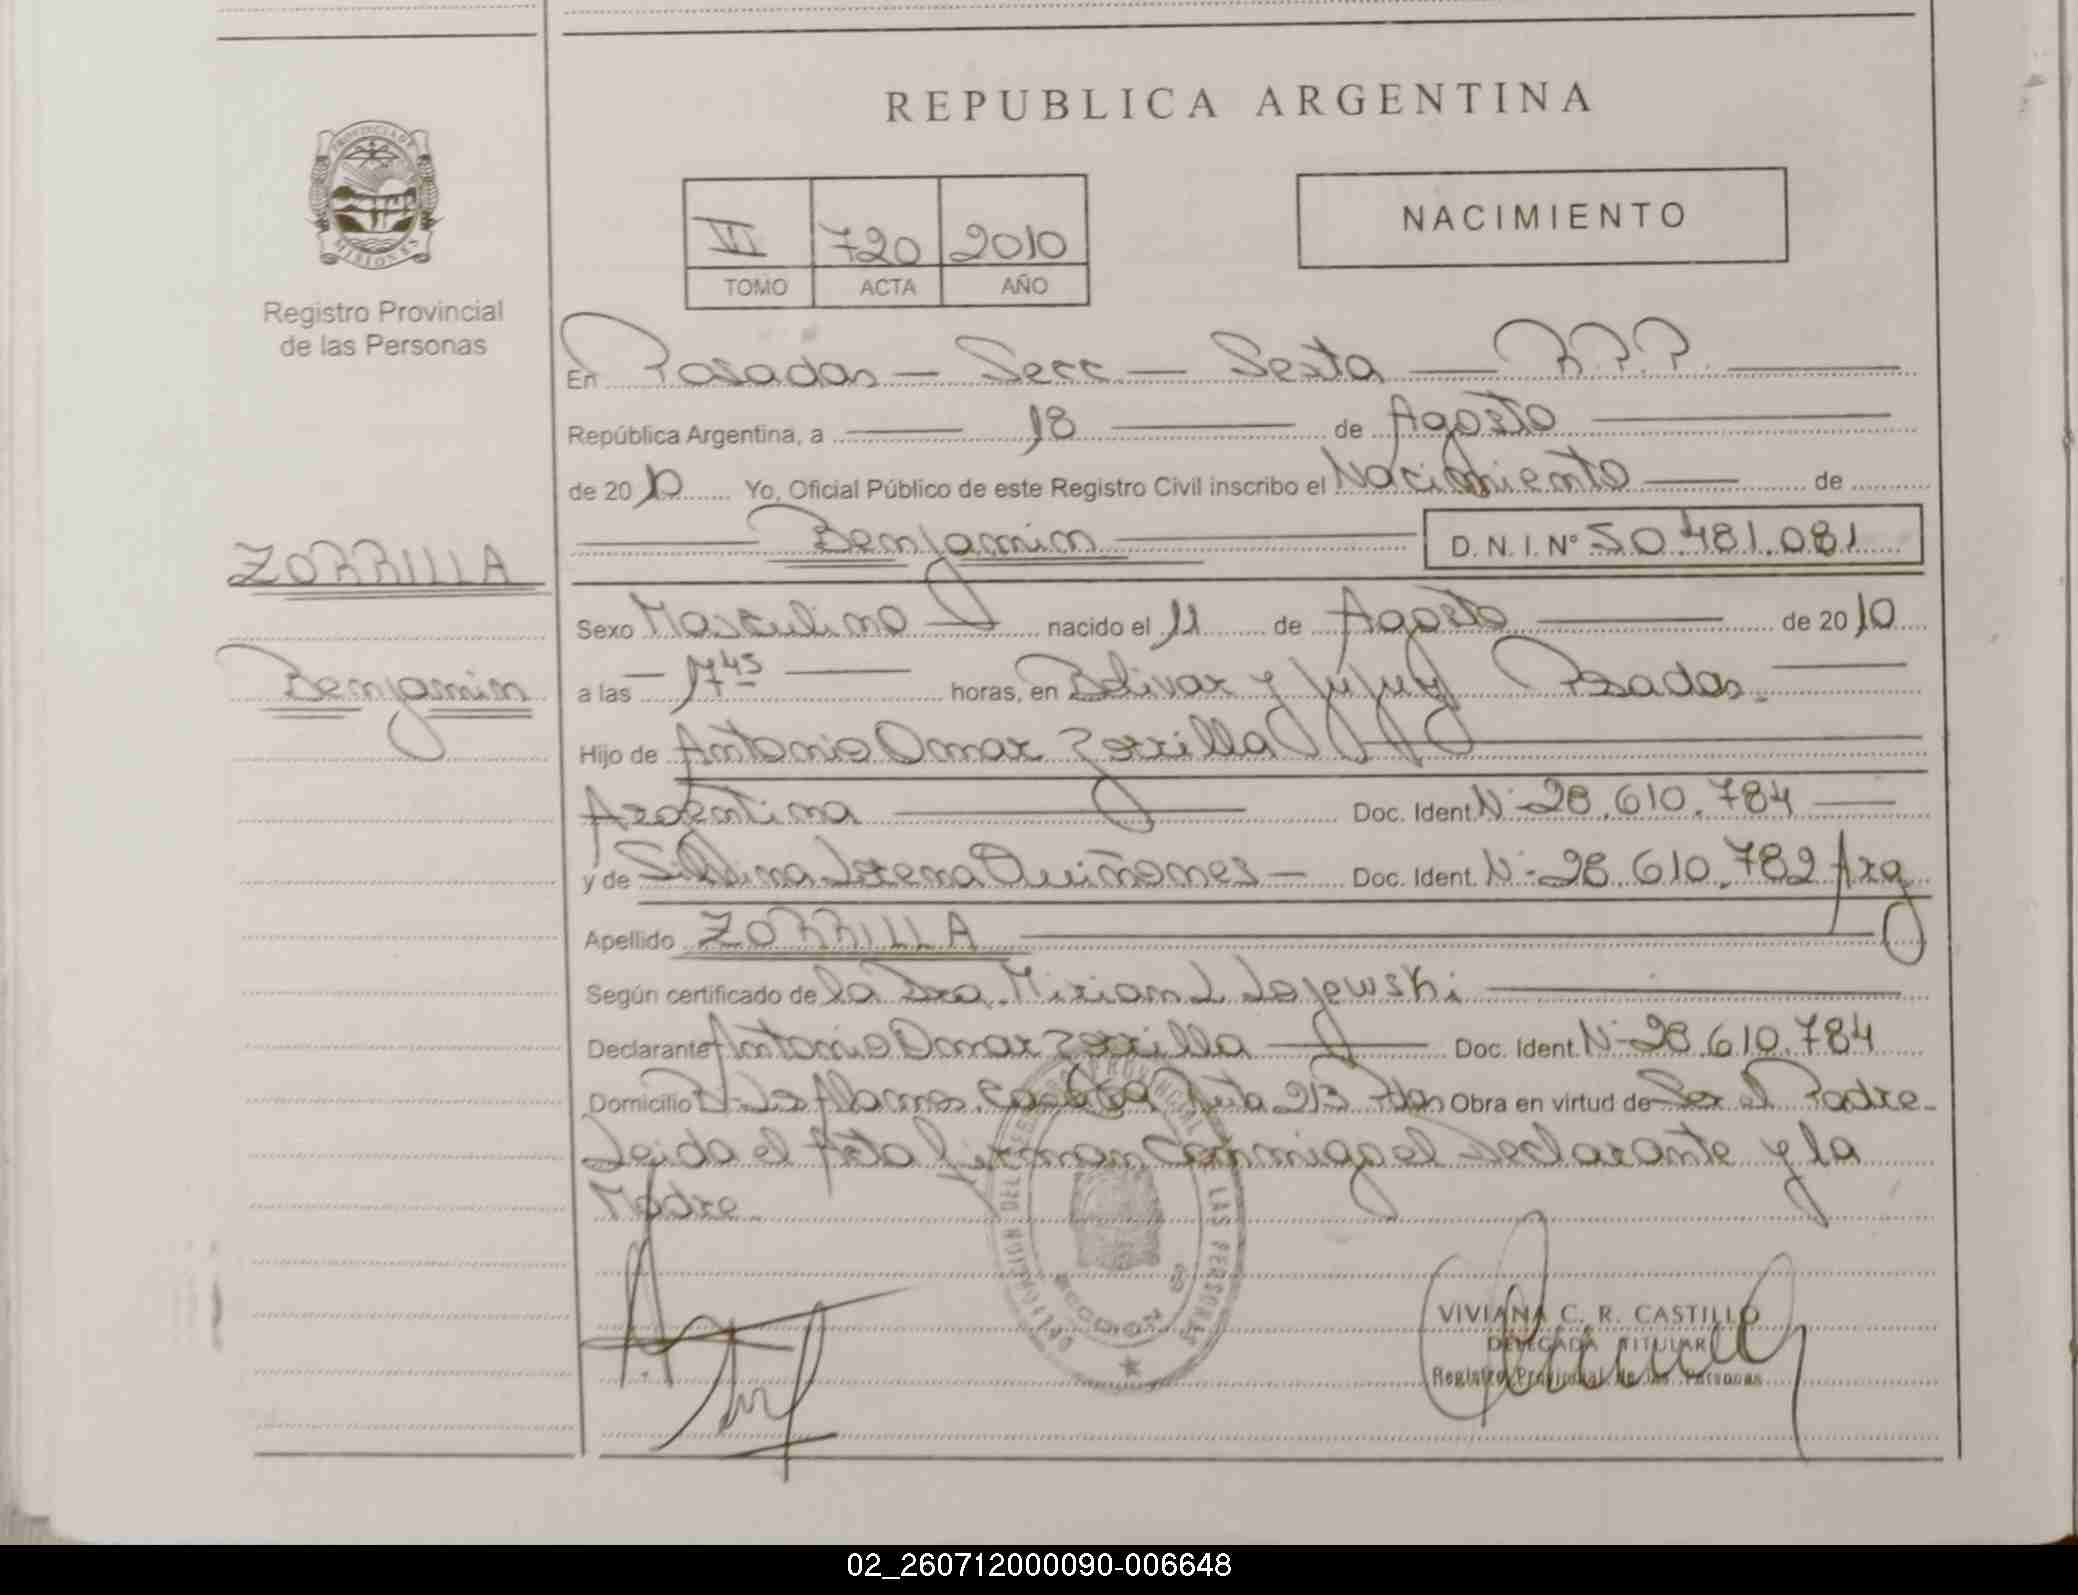 REPUBLICA ARGENTINA
PROVINCIA DE MISIONES
Registro Provincial
de las Personas
VI 720 2010
TOMO ACTA AÑO
NACIMIENTO
En Posadas — Secc — Sexta — R.P.P.
República Argentina, a — 18 — de Agosto
de 2010 Yo, Oficial Público de este Registro Civil inscribo el Nacimiento — de
Benjamin D.N.I. Nº 50.481.081
ZORRILLA
Benjamin
Sexo Masculino — nacido el 11 de Agosto — de 2010
a las — 17 45 — horas, en Bolivar y Jujuy Posadas.
Hijo de Antonio Omar Zorrilla
Argentina — Doc. Ident. Nº 28.610.784 —
y de Silvina Lorena Quiñones — Doc. Ident. Nº 28.610.782 Arg
Apellido ZORRILLA
Según certificado de la Dra. Miriam L Lajewski
Declarante Antonio Omar Zorrilla — Doc. Ident. Nº 28.610.784
Domicilio Los Alamos 213 Pdas Obra en virtud de Ser el Padre-
Leida el Acta firman Conmigo el Declarante y la
Madre.
DELEGACION DEL REGISTRO PROVINCIAL DE LAS PERSONAS
SECCION 6º
VIVIANA C. R. CASTILLO
DELEGADA TITULAR
Registro Provincial de las Personas
02_260712000090-006648